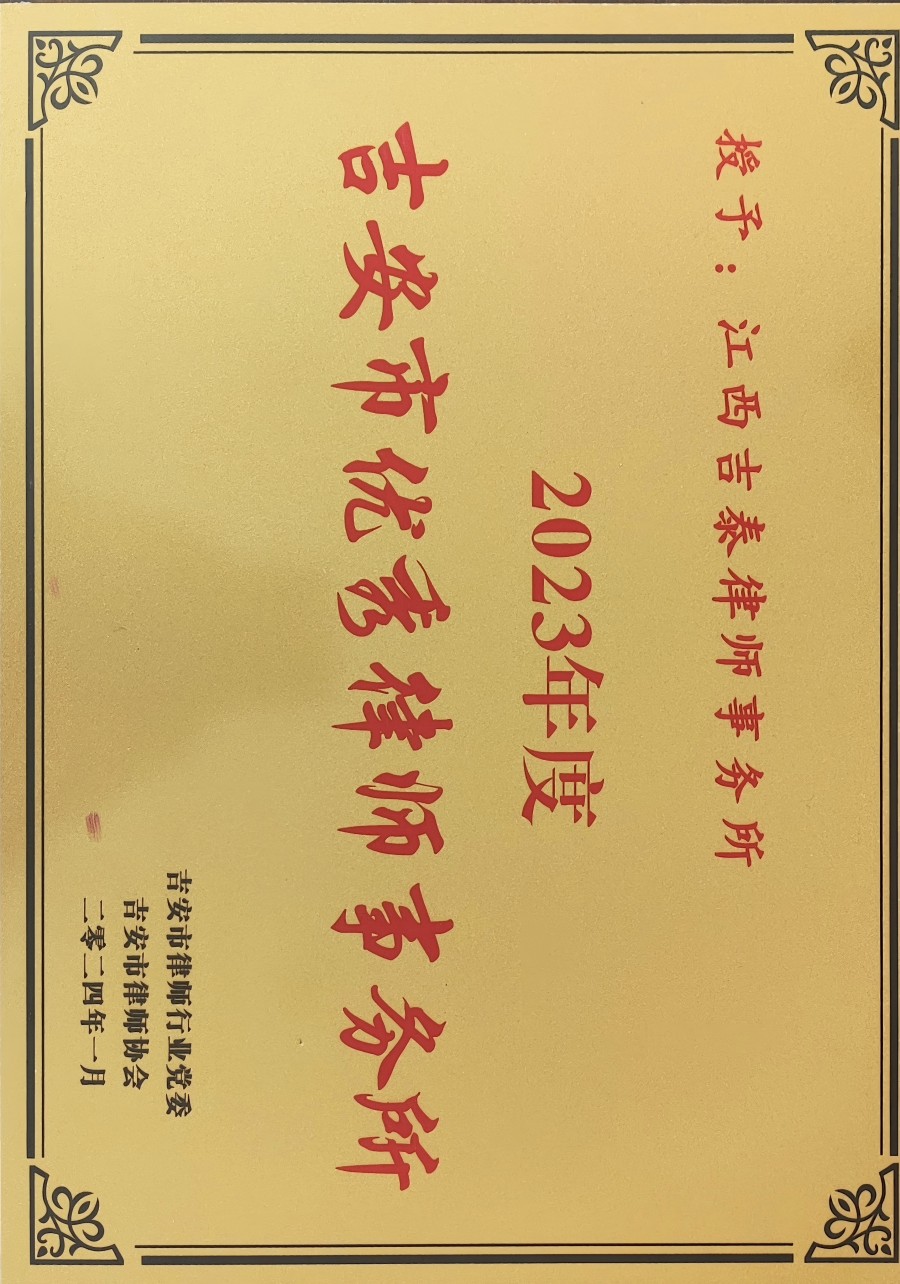 授予：江西吉泰律师事务所
2023年度
吉安市优秀律师事务所
吉安市律师行业党委
吉安市律师协会
二零二四年一月